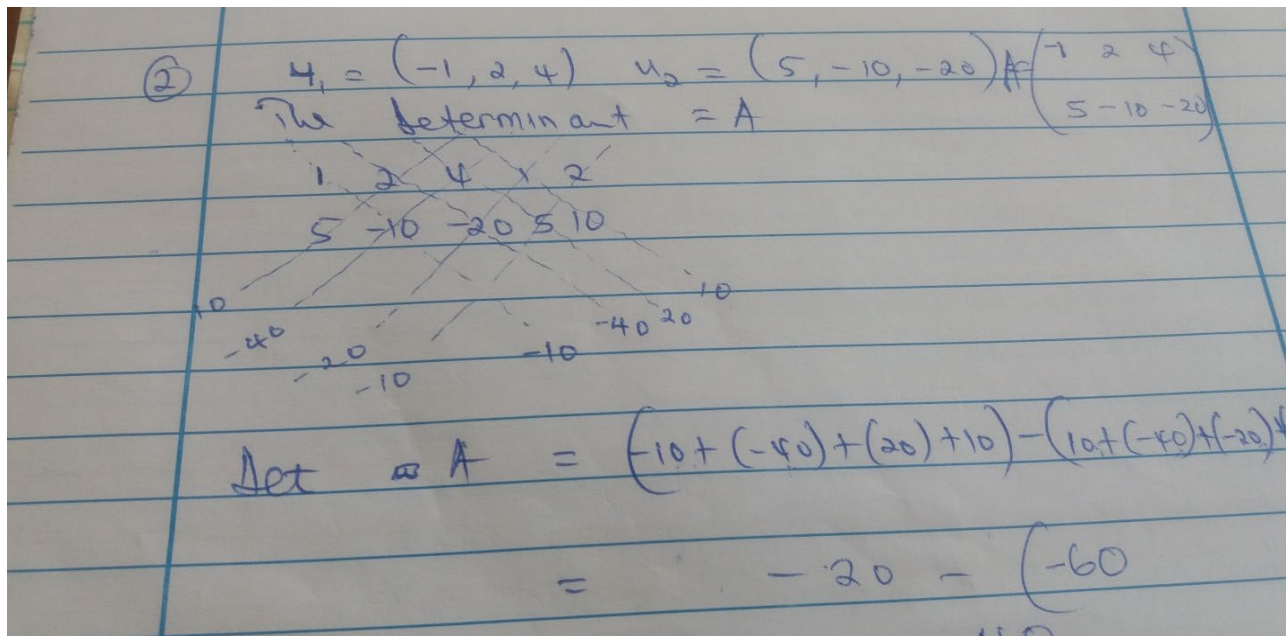 ② u₁ = (-1, 2, 4) u₂ = (5, -10, -20) A = (-1 2 4
5 -10 -20)
The Determinant = A
1 2 4 1 2
5 -10 -20 5 10
10 -40 -20 -10 -10 -40 20 10
Det A = (-10 + (-40) + (20) + 10) - (10 + (-40) + (-20) +
= -20 - (-60